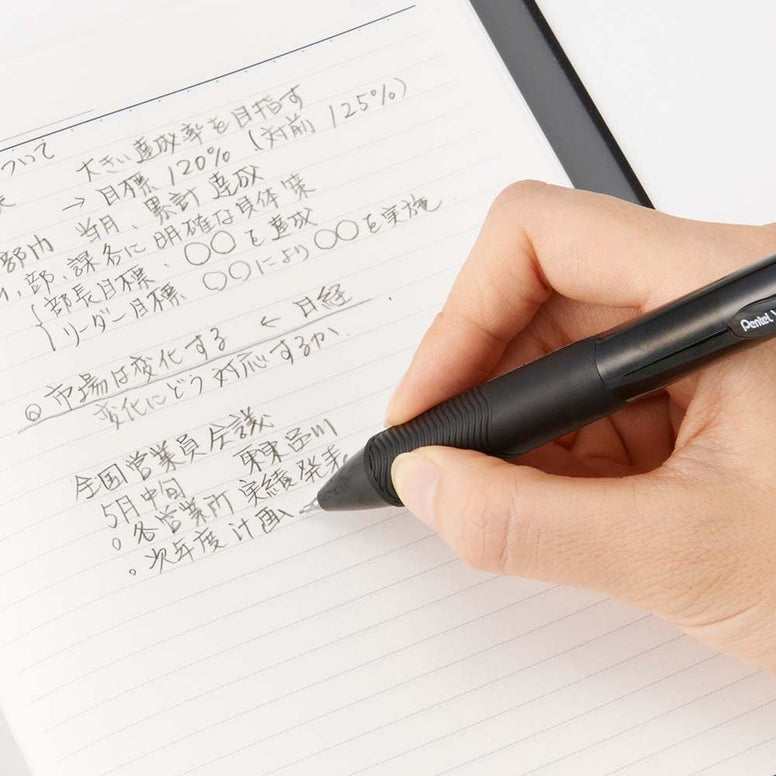 ついて
大きい達成率を目指す
→ 目標 120% (対前 125%)
部内 当月、累計 達成
部、課名に 明確な具体策
部長目標、〇〇を達成
リーダー目標 〇〇により〇〇を実施
◎市場は変化する ← 日経
変化にどう対応するか、
全国営業員会議
5月中旬 東京品川
。各営業所 実績発表
。次年度計画、
Pentel